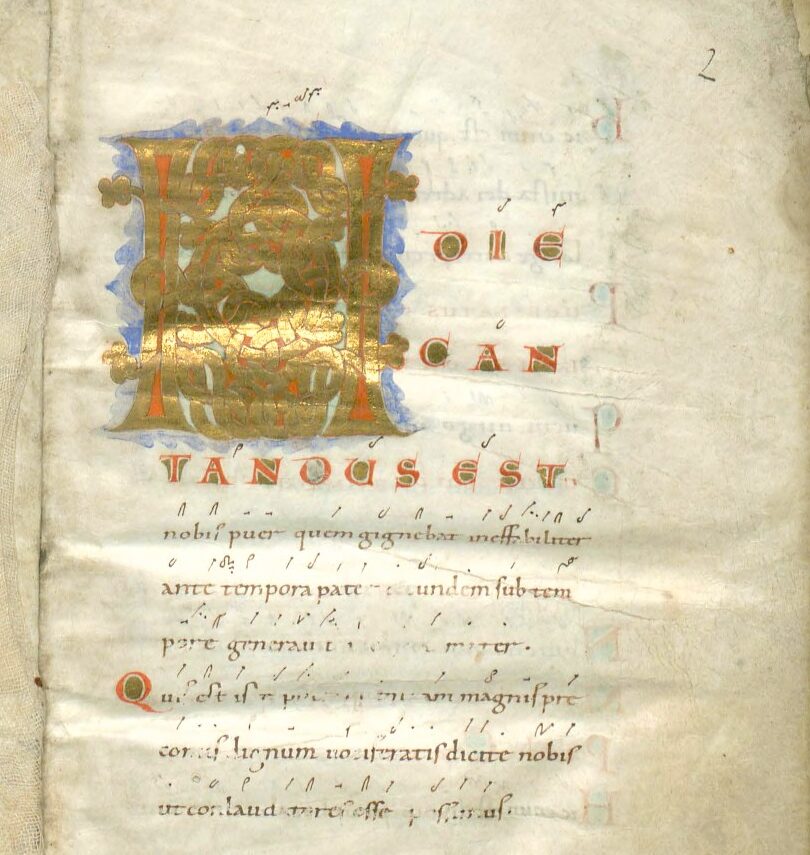 2
HODIE
CAN
TANDUS EST
nobis puer quem gignebat ineffabiliter
ante tempora pater eundem sub tem
pore generauit mater.
Quis est iste puer quem tam magnis pre
coniis dignum uociferatis dicite nobis
ut conlaudatores esse possimus.